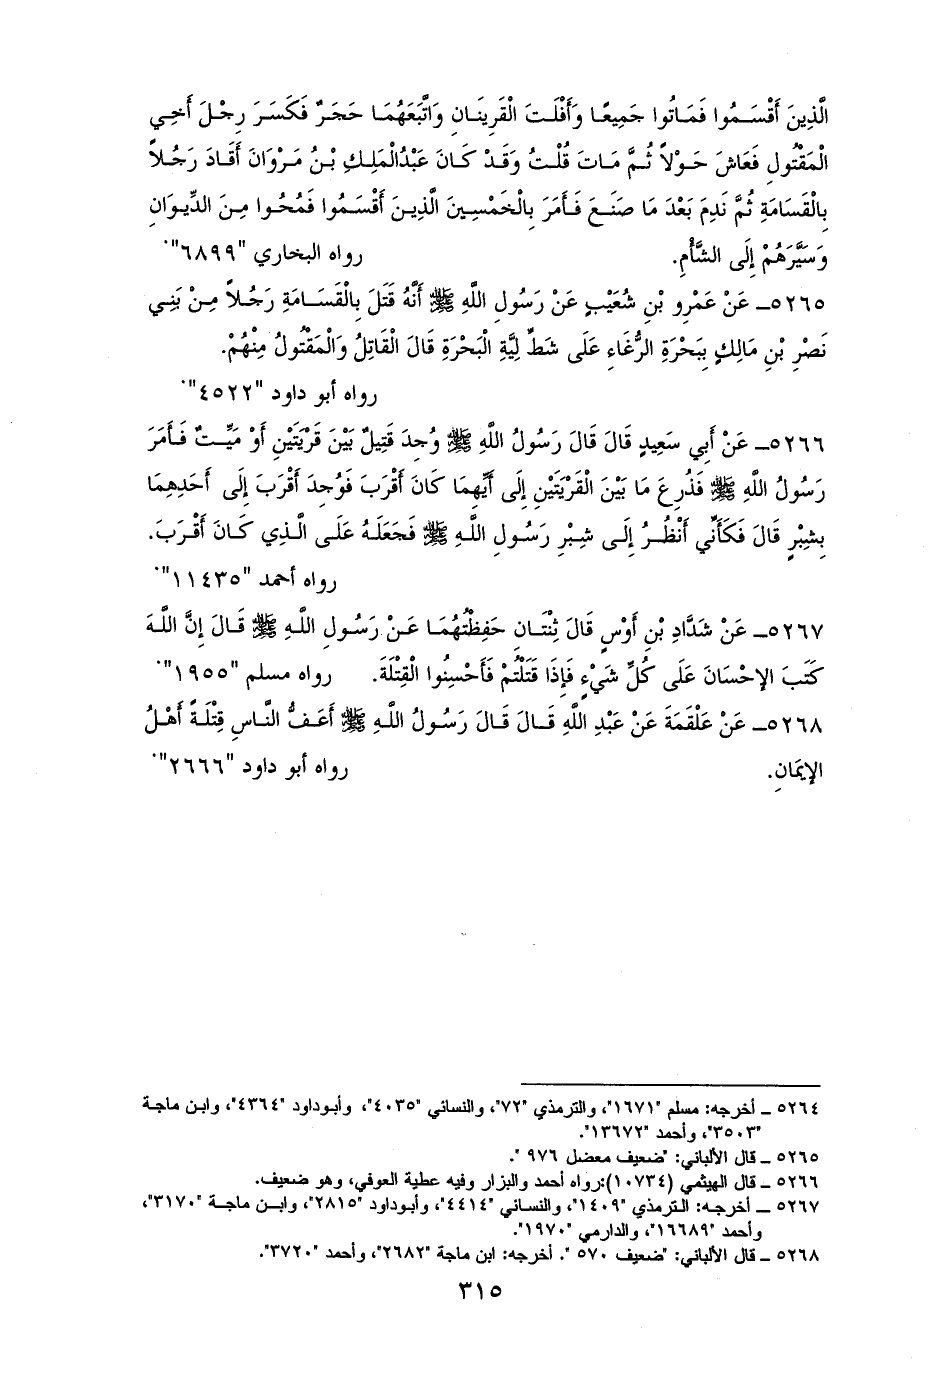 الَّذِينَ أَقْسَمُوا فَمَاتُوا جَمِيعًا وَأَفْلَتَ الْقَرِينَانِ وَاتَّبَعَهُمَا حَجَرٌ فَكَسَرَ رِجْلَ أَخِي
الْمَقْتُولِ فَعَاشَ حَوْلاً ثُمَّ مَاتَ قُلْتُ وَقَدْ كَانَ عَبْدُالْمَلِكِ بْنُ مَرْوَانَ أَقَادَ رَجُلاً
بِالْقَسَامَةِ ثُمَّ نَدِمَ بَعْدَ مَا صَنَعَ فَأَمَرَ بِالْخَمْسِينَ الَّذِينَ أَقْسَمُوا فَمُحُوا مِنَ الدِّيوَانِ
وَسَيَّرَهُمْ إِلَى الشَّأْمِ. رواه البخاري "٦٨٩٩".
٥٢٦٥ـ عَنْ عَمْرِو بْنِ شُعَيْبٍ عَنْ رَسُولِ اللَّهِ ﷺ أَنَّهُ قَتَلَ بِالْقَسَامَةِ رَجُلاً مِنْ بَنِي
نَصْرِ بْنِ مَالِكٍ بِبَحْرَةِ الرُّغَاءِ عَلَى شَطِّ لِيَّةِ الْبَحْرَةِ قَالَ الْقَاتِلُ وَالْمَقْتُولُ مِنْهُمْ.
رواه أبو داود "٤٥٢٢".
٥٢٦٦ـ عَنْ أَبِي سَعِيدٍ قَالَ قَالَ رَسُولُ اللَّهِ ﷺ وُجِدَ قَتِيلٌ بَيْنَ قَرْيَتَيْنِ أَوْ مَيِّتٌ فَأَمَرَ
رَسُولُ اللَّهِ ﷺ فَذُرِعَ مَا بَيْنَ الْقَرْيَتَيْنِ إِلَى أَيِّهِمَا كَانَ أَقْرَبَ فَوُجِدَ أَقْرَبَ إِلَى أَحَدِهِمَا
بِشِبْرٍ قَالَ فَكَأَنِّي أَنْظُرُ إِلَى شِبْرِ رَسُولِ اللَّهِ ﷺ فَجَعَلَهُ عَلَى الَّذِي كَانَ أَقْرَبَ.
رواه أحمد "١١٤٣٥".
٥٢٦٧ـ عَنْ شَدَّادِ بْنِ أَوْسٍ قَالَ ثِنْتَانِ حَفِظْتُهُمَا عَنْ رَسُولِ اللَّهِ ﷺ قَالَ إِنَّ اللَّهَ
كَتَبَ الإِحْسَانَ عَلَى كُلِّ شَيْءٍ فَإِذَا قَتَلْتُمْ فَأَحْسِنُوا الْقِتْلَةَ. رواه مسلم "١٩٥٥".
٥٢٦٨ـ عَنْ عَلْقَمَةَ عَنْ عَبْدِ اللَّهِ قَالَ قَالَ رَسُولُ اللَّهِ ﷺ أَعَفُّ النَّاسِ قِتْلَةً أَهْلُ
الإِيمَانِ. رواه أبو داود "٢٦٦٦".
٥٢٦٤ ـ أخرجه: مسلم "١٦٧١"، والترمذي "٧٢"، والنسائي "٤٠٣٥"، وأبوداود "٤٣٦٤"، وابن ماجة
"٣٥٠٣"، وأحمد "١٣٦٧٢".
٥٢٦٥ ـ قال الألباني: "ضعيف معضل ٩٧٦ ".
٥٢٦٦ ـ قال الهيثمي (١٠٧٣٤):رواه أحمد والبزار وفيه عطية العوفي، وهو ضعيف.
٥٢٦٧ ـ أخرجه: الترمذي "١٤٠٩"، والنسائي "٤٤١٤"، وأبوداود "٢٨١٥"، وابن ماجة "٣١٧٠"،
وأحمد "١٦٦٨٩"، والدارمي "١٩٧٠".
٥٢٦٨ ـ قال الألباني: "ضعيف ٥٧٠ ". أخرجه: ابن ماجة "٢٦٨٢"، وأحمد "٣٧٢٠".
٣١٥